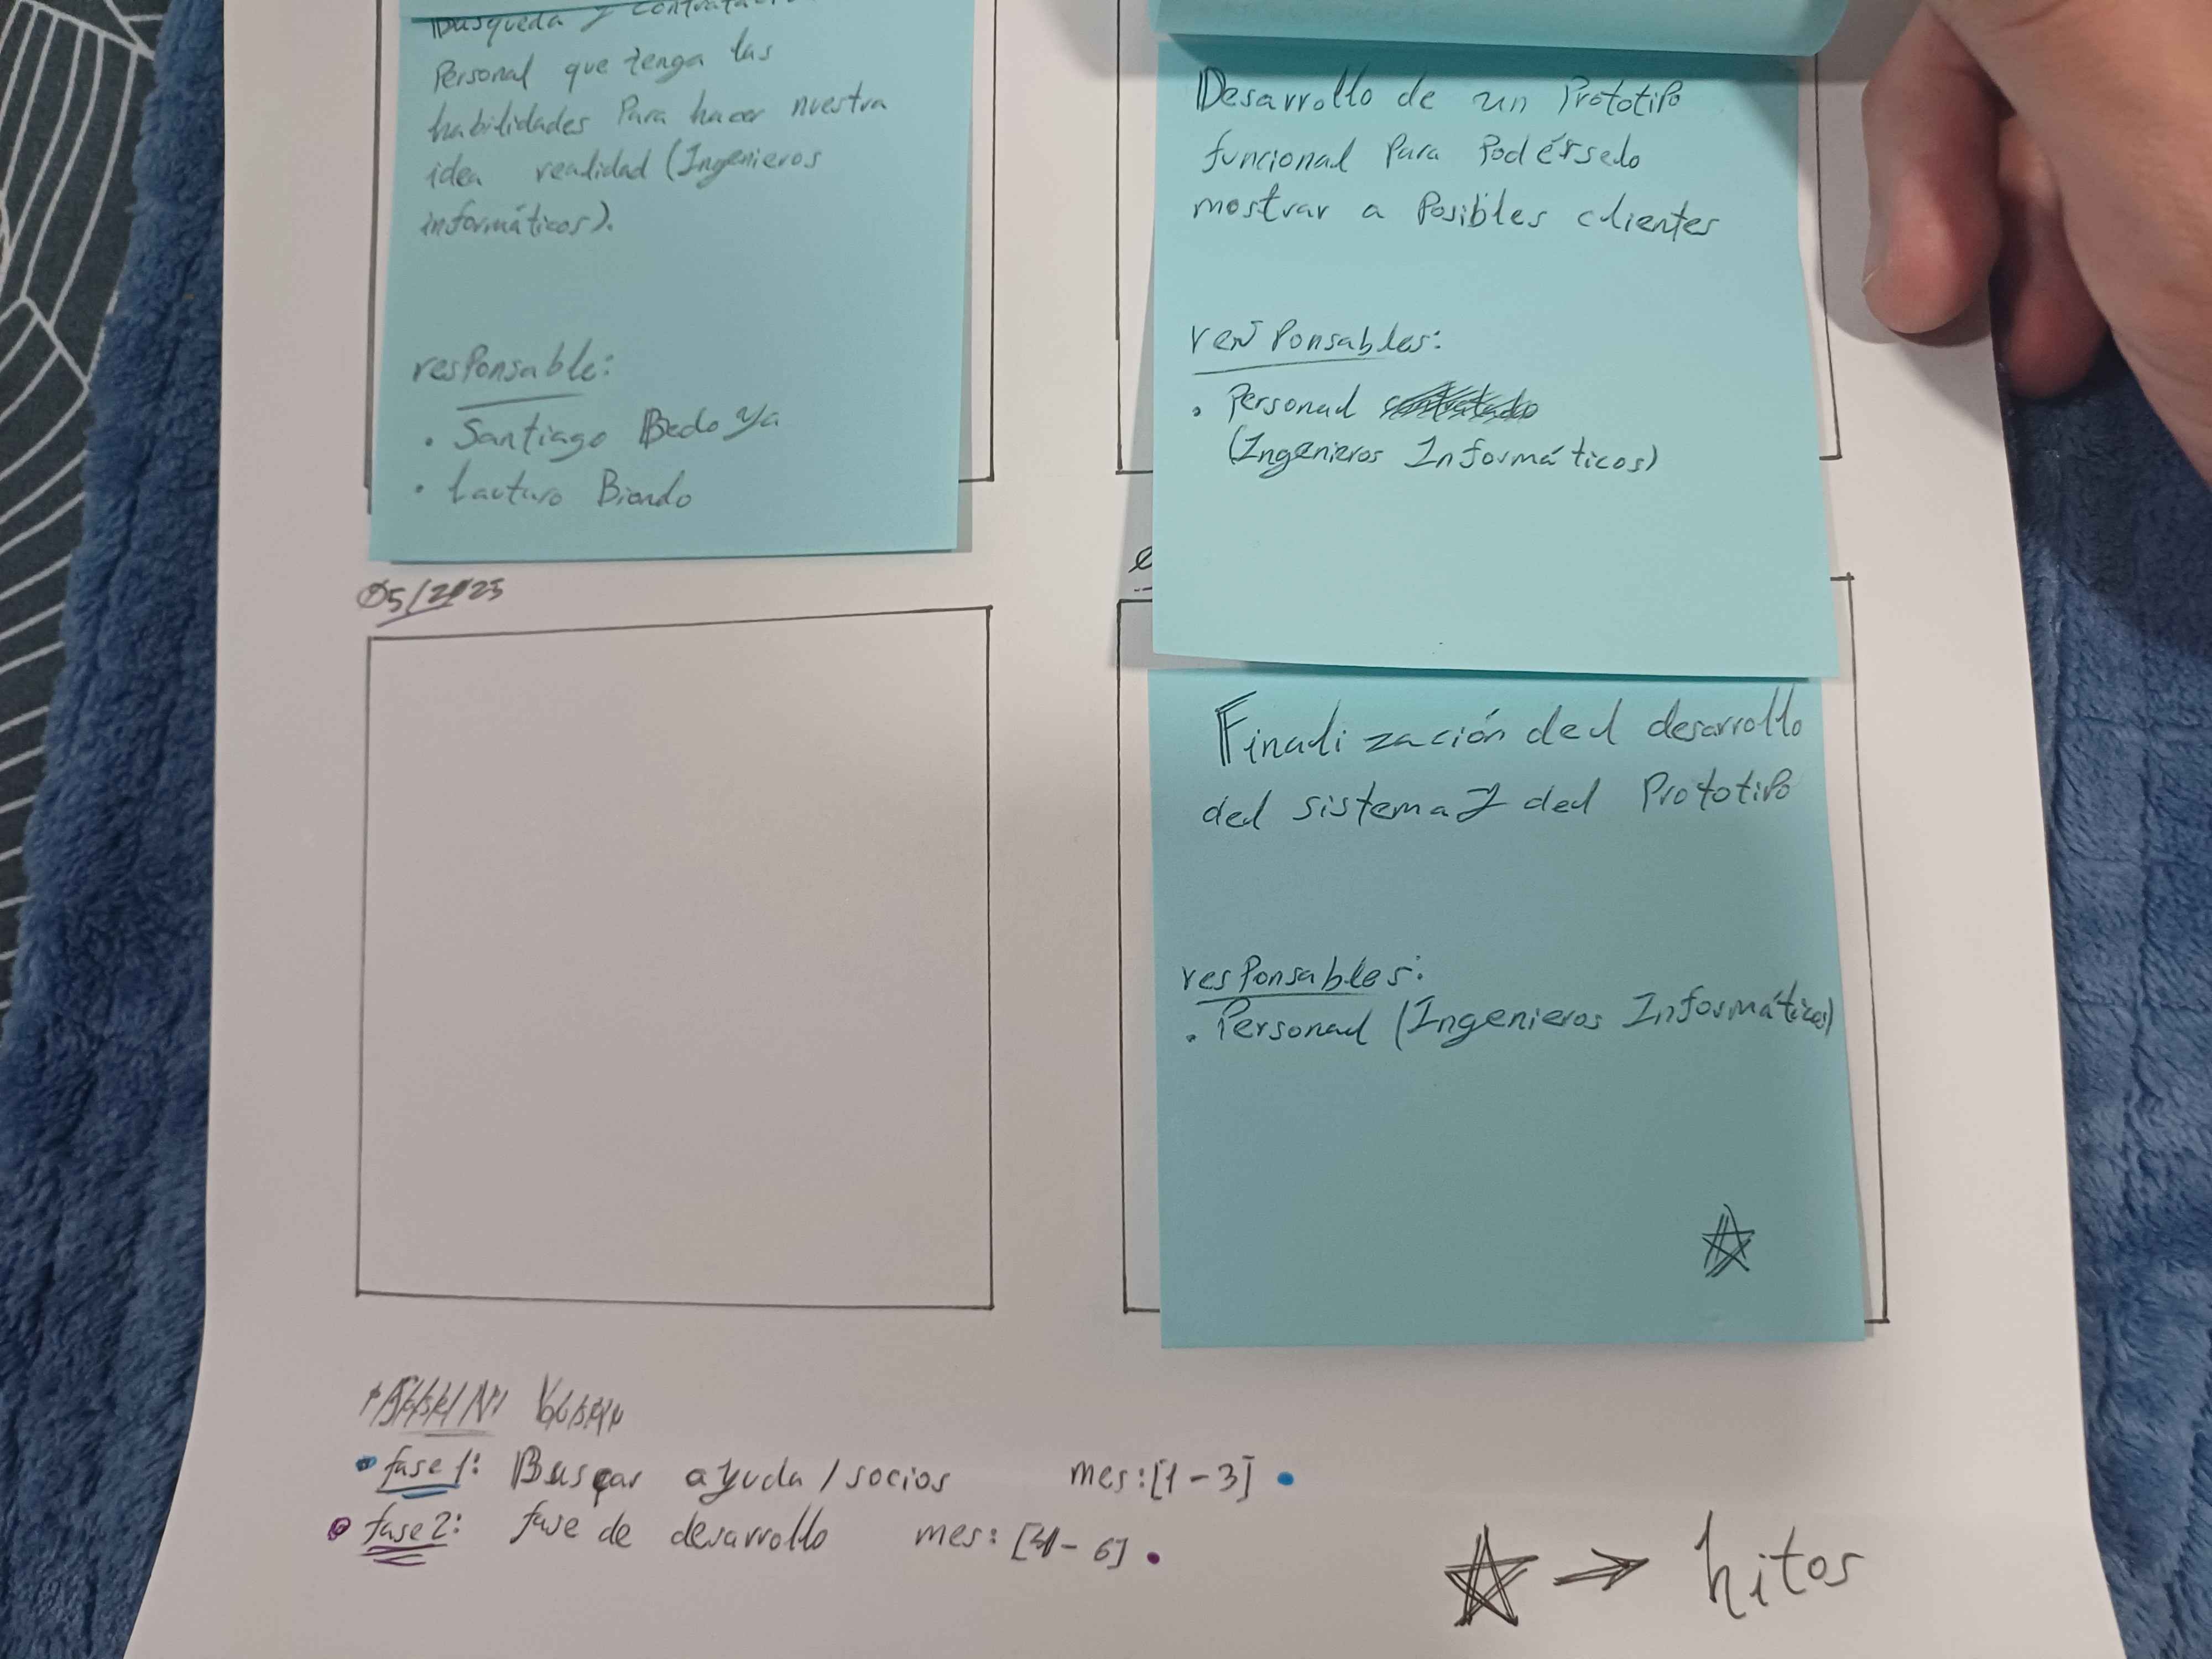 Búsqueda y
Personal que tenga las
habilidades Para hacer nuestra
idea realidad (Ingenieros
informáticos).
responsable:
• Santiago Bedoya
• Lauturo Biondo
Desarrollo de un Prototipo
funcional Para Podérselo
mostrar a Posibles clientes
responsables:
• Personal
(Ingenieros Informáticos)
05/2025
Finalización del desarrollo
del sistema y del Prototipo
responsables:
• Personal (Ingenieros Informáticos)
• fase 1: Buscar ayuda/socios mes: [1-3] •
• fase 2: fase de desarrollo mes: [4-6] •
→ hitos